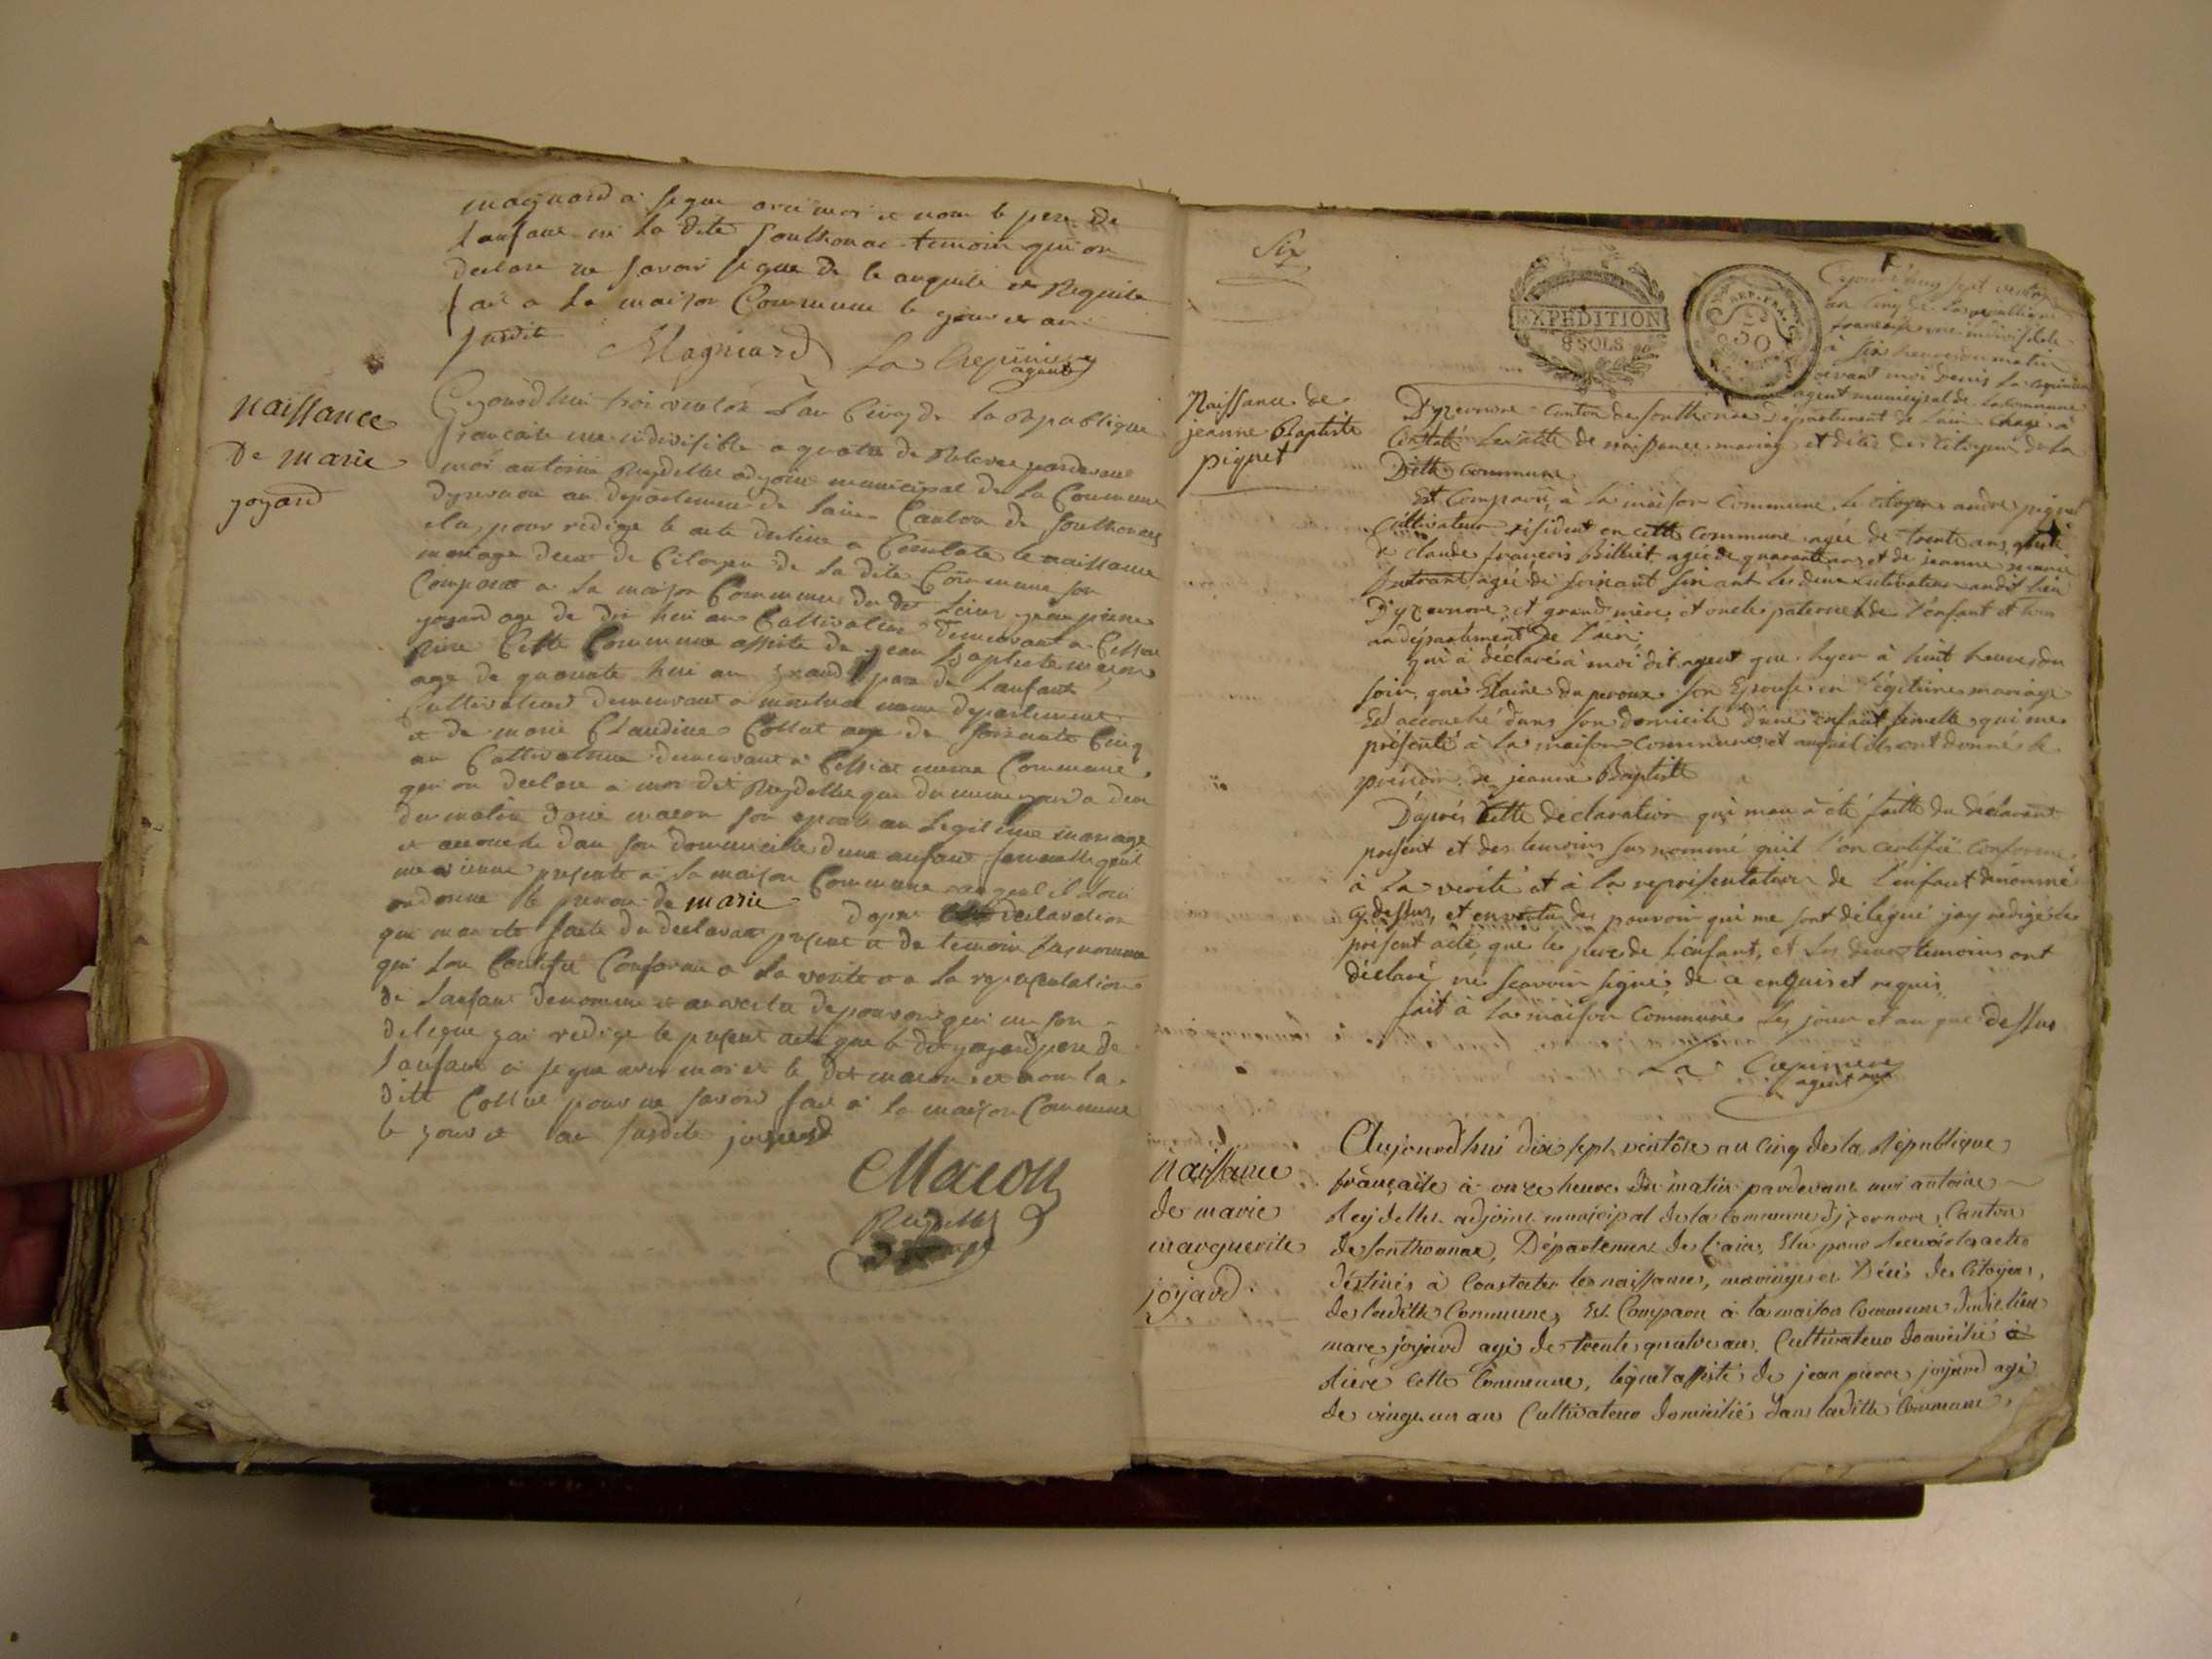 magnard a signe avec moi et non le pere de
lanfant ni la dite southonac temoin qui on
declare ne savoir signe de le anquit et Requite
fait a la maison Commune le jour et an
susdite Magniard La Crepiniere
agent
naissance
De marie
joyard
Cejourdhui troi ventose L'an Cinq de la Republique
francaise une indivisible a quatre de Relevee pardevant
moi antoine Reydellet adjoint municipal de la Commune
dyzernore au departement de lain Canton de Southonax
elu pour redige le acte destine a Constate le naissance
mariage decet de Citoyen de la dite Commune son
Comparut a la maison Commune du dit Lieu jean pierre
joyard age de dix hui an Cultivateur demeurant a Cessiat
Cette Commune assiste de jean Baptiste macon
age de quarante hui an grand pere de Lanfant
Cultivateur demeurant a meme departement
et de marie Claudine Collet age de soixante Cinq
an Cultivatrice demeurant a Cessiat meme Commune
qui on declare a moi dit Reydellet que du meme jour a deux
du matin macon son epouse an Legitime mariage
et accouche dan son domicille d'une anfant femmelle quil
presente a la maison Commune auquel il loui
ondonne le prenon de marie dapre declaration
qui man ete faite du declarant present et de temoin susnomme
qui Lon Certifie Conforme a la verite et a la representation
de Lanfant denomme et an vertu de pouvoir qui me son
delegue jai redige le present acte que le dit joyard pere de
lanfant a signe avec moi et le dit macon et non la
dite Collet pour ne savoir fait a la maison Commune
le jour et an susdite joyard
Macon
Reydellet
Six
EXPEDITION
8 SOLS
REP. FRA.
50
Cejourd'huy sept ventose
an Cinq de la republique
francaise une indivisible
à six heures du matin
devant moi Denis La Crepiniere
agent municipal de la commune
Naissance de
jeanne Baptiste
pignet
D'yzernore Canton de southonax Département de l'ain Chargé à
Constaté les acte de naissance mariag et décès des Citoyen de la
Ditte commune
Est Comparu, à la maison Commune, le Citoyen andré pignet
Cultivateur résident en cette Commune agée de trente ans,
de claude françois Billiet, agée de quarante ans et de jeanne marie
agée de soixant six ant les deux cultivateur audit lieu
D'yzernore, et grand mère, et oncle paternel de l'enfant et tous
au département De l'ain;
qui à déclaré à moi dit agent que hyer à huit heures du
soir, que Elaine Duperoux son Epouse en légitime mariage
Est accouché dans son domicile d'une enfant femelle qui me
présenté à la maison commune, et auquel ils ont donnée le
prénom de jeanne Baptiste
D'après Cette déclaration qui mon à été faitte du déclarant
présent et des temoins sus nommé quil l'on certifié conforme
à la vérité et à la représentation de l'enfant dénommé
Cy dessus, et en vertu des pouvoir qui me sont délégué jay rédigé le
présent acte, que le pere de l'enfant, et les deux temoins ont
déclaré ne scavoir signé, de ce enquis et requis,
fait à la maison Commune les jour et an que dessus
La Crepiniere
agent
naissance
de marie
marguerite
joyard.
Aujourd'hui dix sept ventôse an Cinq de la République
française à onze heures du matin pardevant moi antoine
Reydellet adjoint municipal de la Commune d'yzernore, Canton
de Sonthonnax, Département de l'ain, Elu pour Recevoir les actes
déstinés à Constater les naissances, mariages et Décès des Citoyens,
de laditte Commune, Est Comparu à la maison Commune dudit lieu
marc joyard agé de trente quatre ans Cultivateur domicilié à
Cette Commune, lequel assisté de jean pierre joyard agé
de vingt un ans Cultivateur domicilié dans laditte Commune,